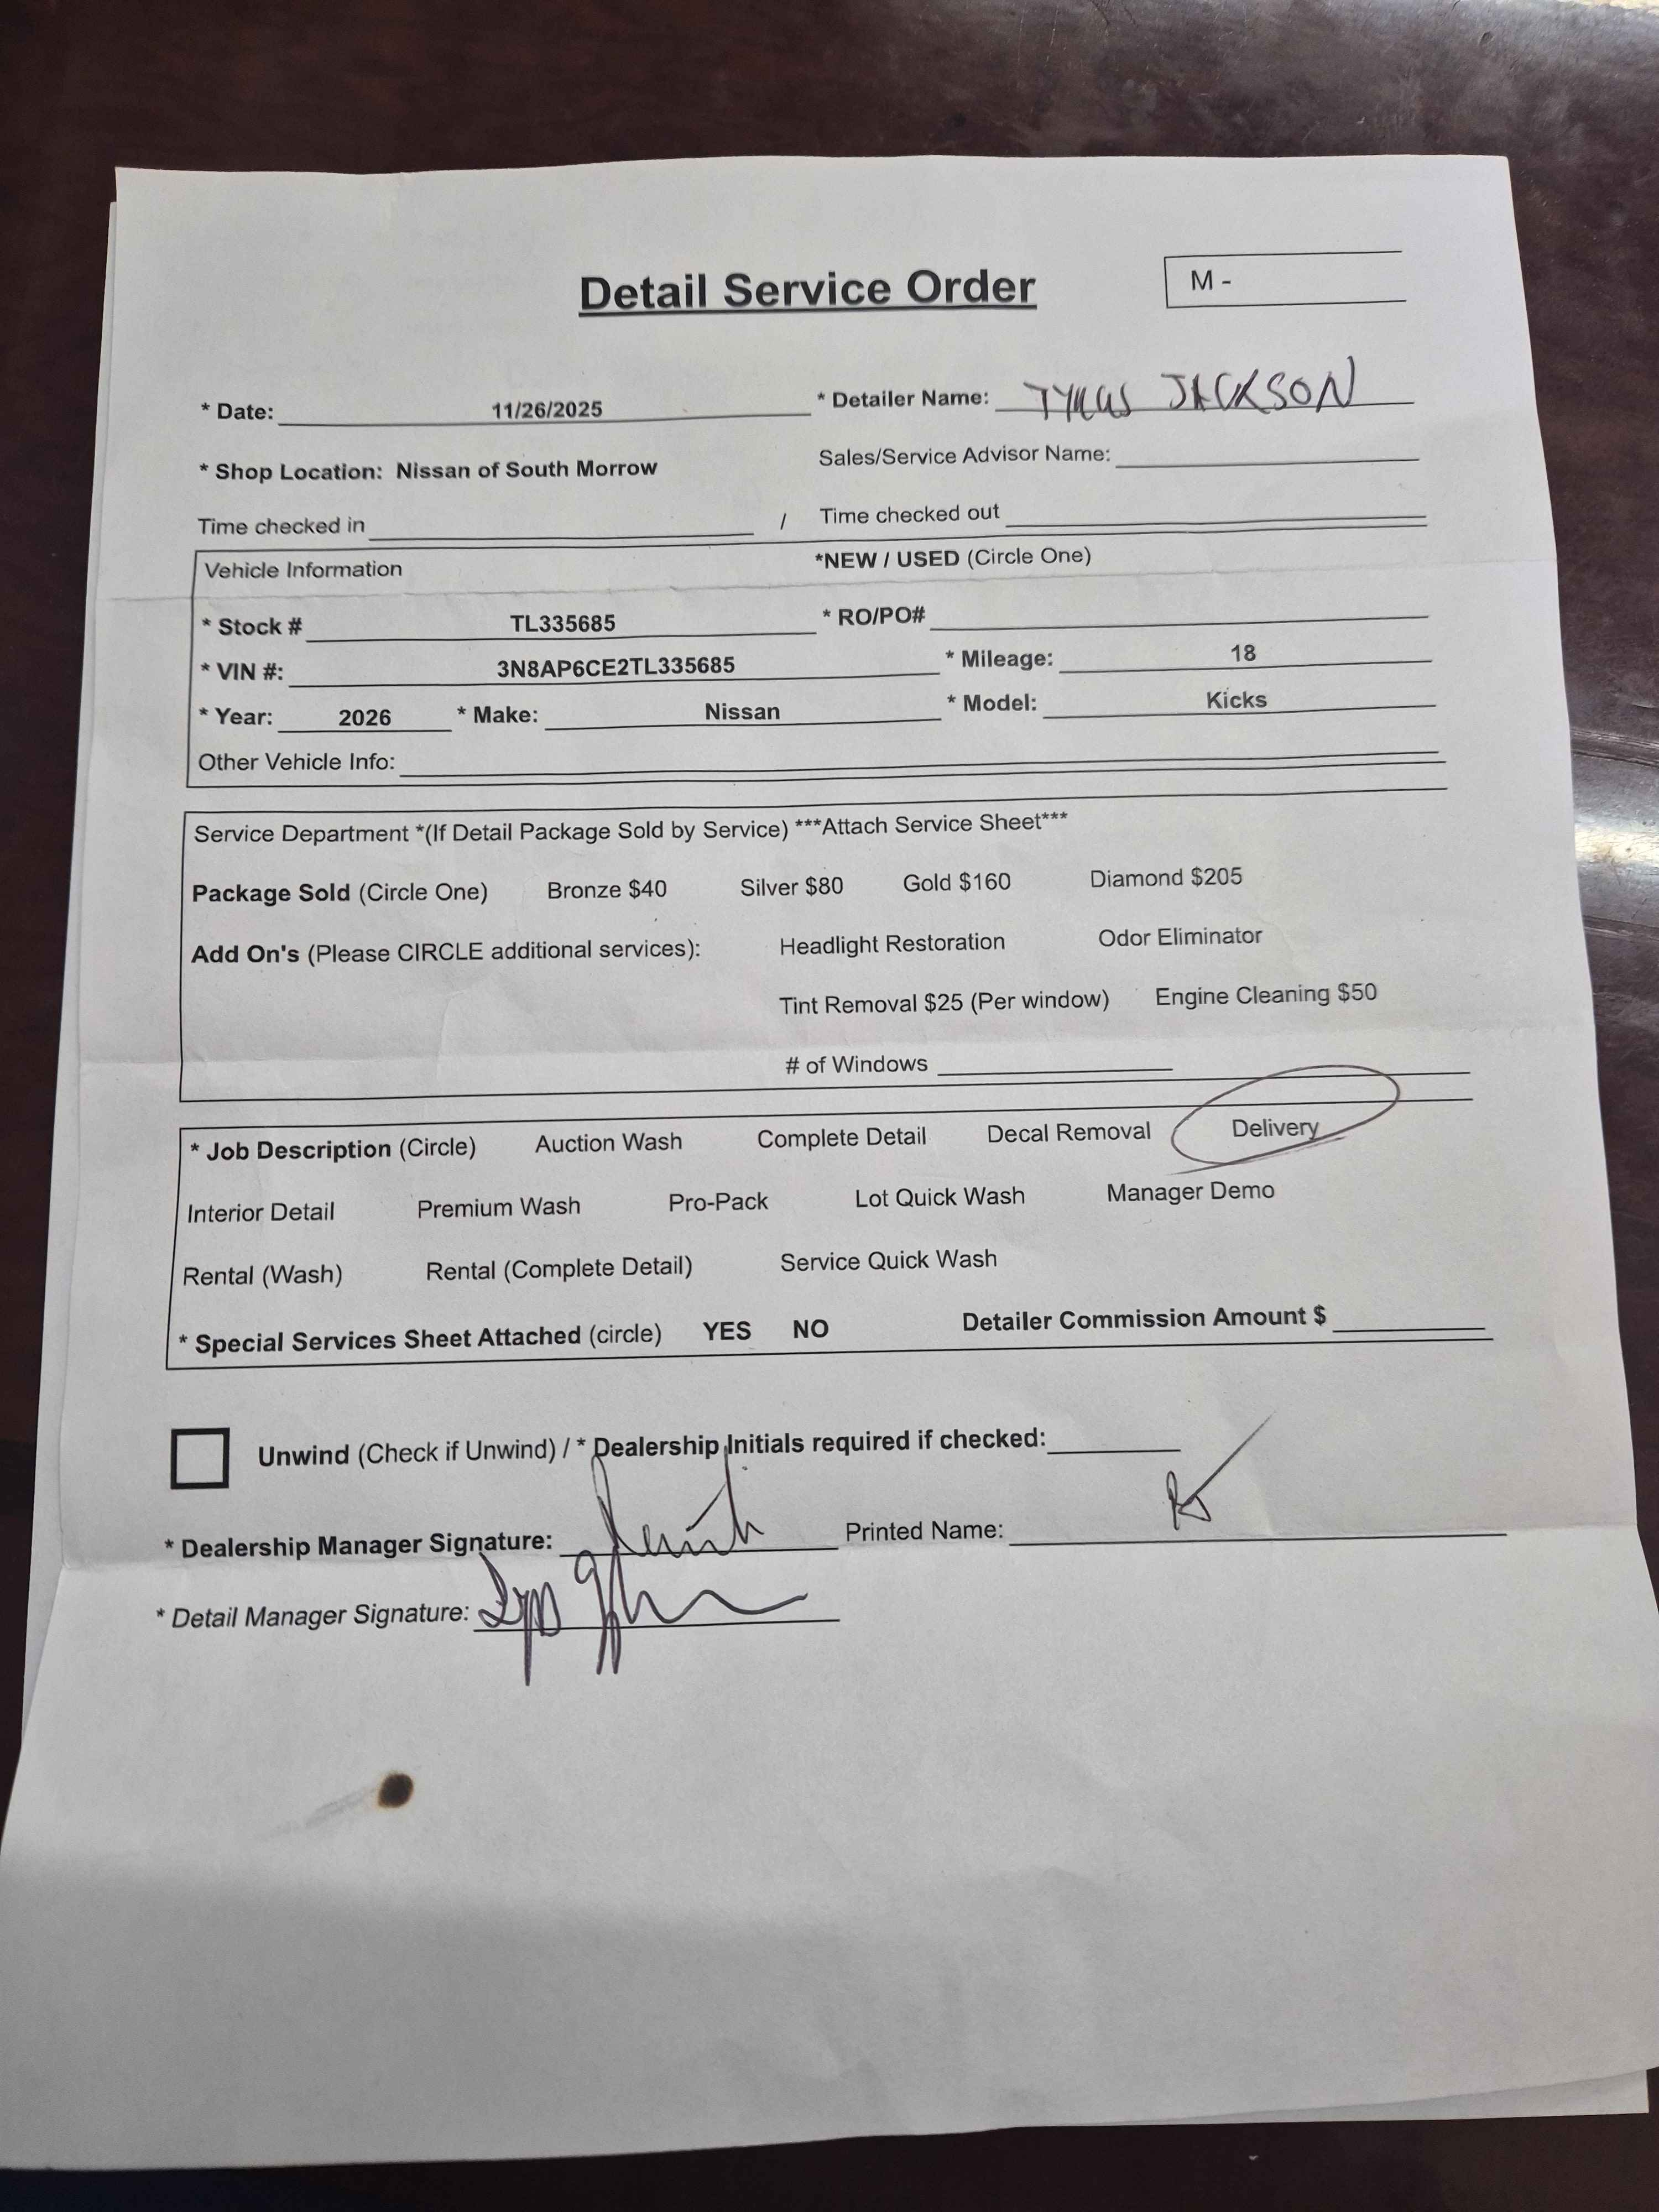 Detail Service Order
M -
* Date: 11/26/2025 * Detailer Name: JACKSON
* Shop Location: Nissan of South Morrow Sales/Service Advisor Name:
Time checked in / Time checked out
Vehicle Information *NEW / USED (Circle One)
* Stock # TL335685 * RO/PO#
* VIN #: 3N8AP6CE2TL335685 * Mileage: 18
* Year: 2026 * Make: Nissan * Model: Kicks
Other Vehicle Info:
Service Department *(If Detail Package Sold by Service) ***Attach Service Sheet***
Package Sold (Circle One) Bronze $40 Silver $80 Gold $160 Diamond $205
Add On's (Please CIRCLE additional services): Headlight Restoration Odor Eliminator
Tint Removal $25 (Per window) Engine Cleaning $50
# of Windows
* Job Description (Circle) Auction Wash Complete Detail Decal Removal Delivery
Interior Detail Premium Wash Pro-Pack Lot Quick Wash Manager Demo
Rental (Wash) Rental (Complete Detail) Service Quick Wash
* Special Services Sheet Attached (circle) YES NO Detailer Commission Amount $
Unwind (Check if Unwind) / * Dealership Initials required if checked:
* Dealership Manager Signature: Printed Name:
* Detail Manager Signature: